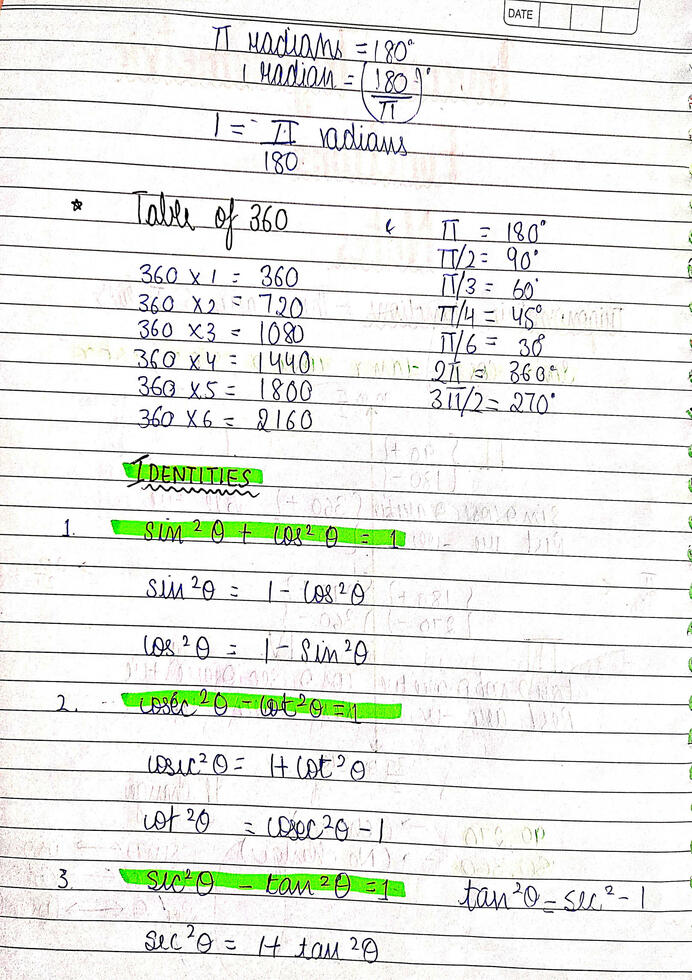 DATE
π radians = 180°
1 radian = (180/π)°
1 = π/180 radians
* Table of 360
360 x 1 = 360
360 x 2 = 720
360 x 3 = 1080
360 x 4 = 1440
360 x 5 = 1800
360 x 6 = 2160
π = 180°
π/2 = 90°
π/3 = 60°
π/4 = 45°
π/6 = 30°
2π = 360°
3π/2 = 270°
IDENTITIES
1. sin²θ + cos²θ = 1
sin²θ = 1 - cos²θ
cos²θ = 1 - sin²θ
2. cosec²θ - cot²θ = 1
cosec²θ = 1 + cot²θ
cot²θ = cosec²θ - 1
3 sec²θ - tan²θ = 1 tan²θ = sec² - 1
sec²θ = 1 + tan²θ